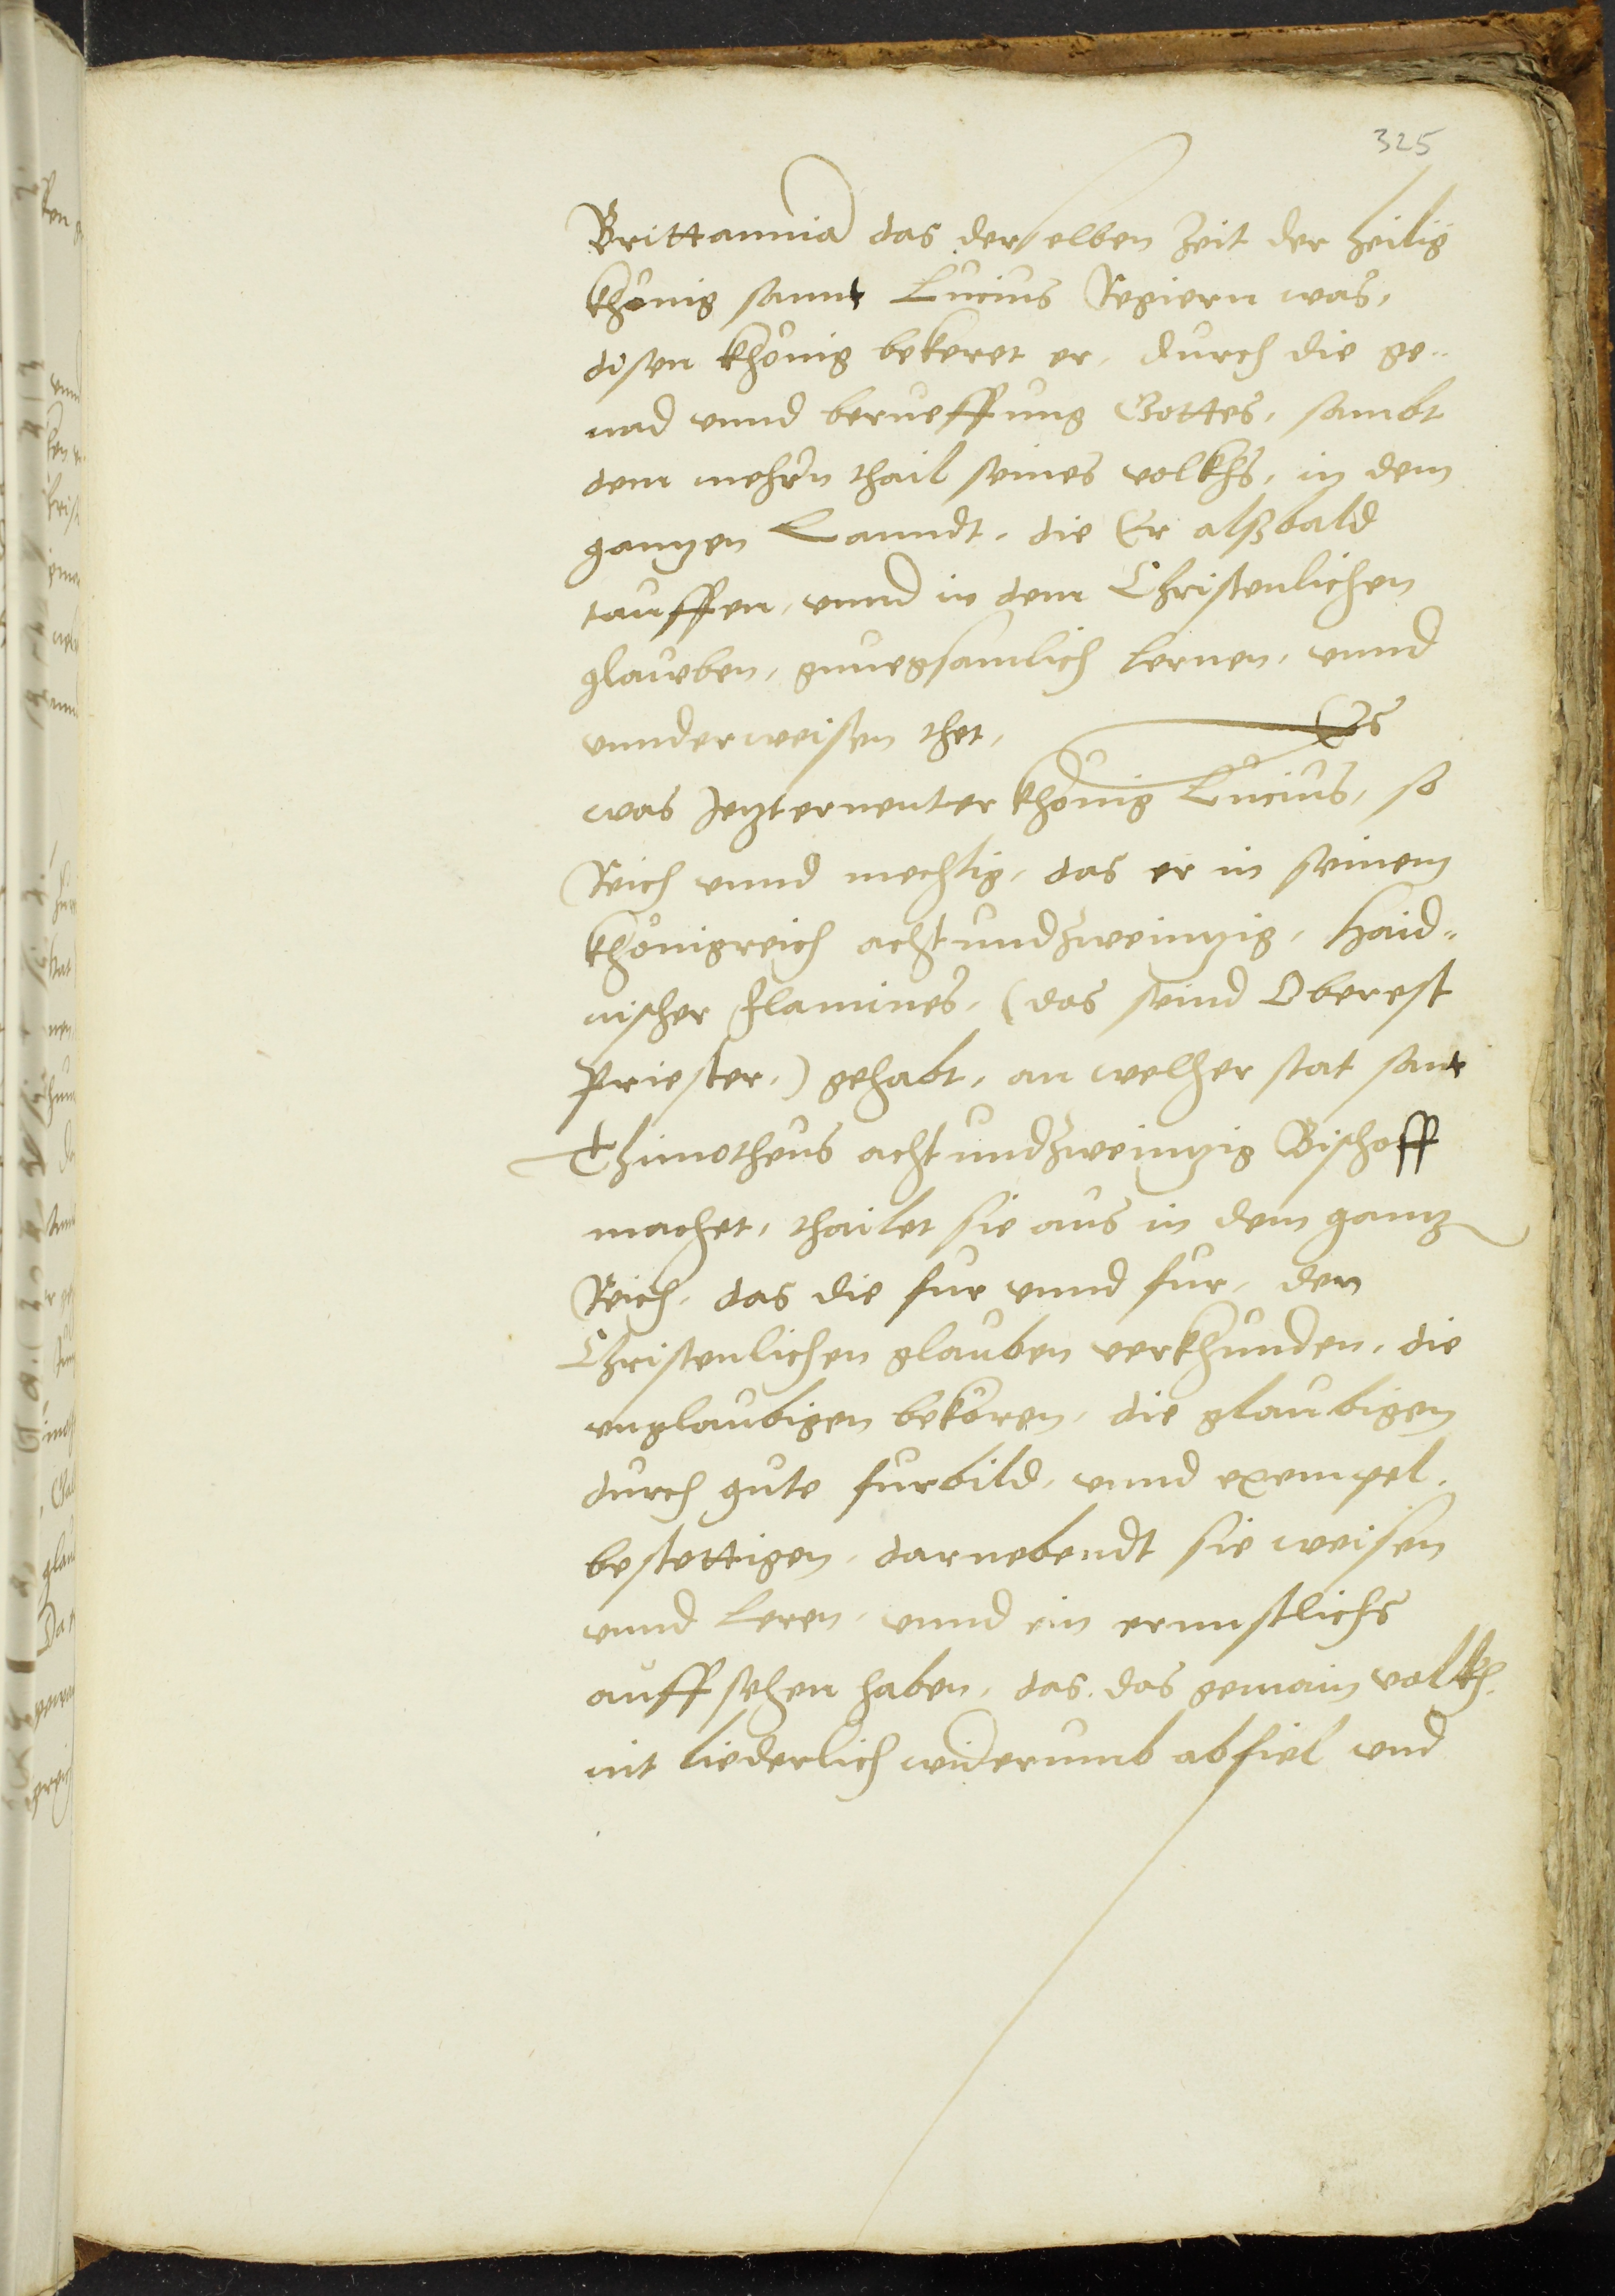 325
Brittannia das derselben Zeit der heilig
khönig sannt Lucius Regiern was,
disen khönig bekeret er, durch die ge-
nad vnnd berueffung Gottes, sambt
dem mehrn thail seines volkhs, in dem
gantzen Lanndt, die Er alßbald
tauffen, vnnd in dem Christenlichen
glauben, gnuegsamlich lernen, vnnd
vnnderweisen thet, Es
was Jetzternenter khönig Lucius, so
Reich vnnd mechtig, das er in seinem
khönigreich achtundzweintzig, Haid-
nischer flamines, (das seind Oberest
priester,) gehabt, an welher stat sant
Thimotheus achtundzweintzig Bischoff
machet, thailet sie aus in dem gantz
Reich, das die fur vnnd fur, den
Christenlichen glauben verkhunden, die
vnglaubigen bekören, die glaubigen
durch gute furbild, vnnd exempel,
bestettigen, darnebendt sie weisen
vnnd leren, vnnd ein ernnstlichs
auffsehen haben, das das gemain volkh
nit liederlich widerumb abfiel vnd